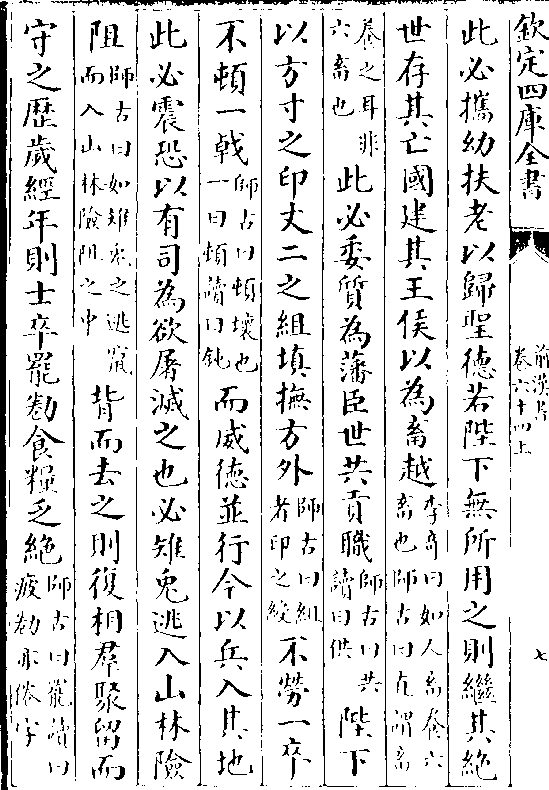 欽定四庫全書
前漢書
卷六十四上
七
此必攜幼扶老以歸聖德若陛下無所用之則繼其絕
世存其亡國建其王侯以為畜越李奇曰如人畜養六畜也師古曰直謂畜
養之耳非六畜也此必委質為藩臣世共貢職師古曰共讀曰供陛下
以方寸之印丈二之組填撫方外師古曰組者印之綬不勞一卒
不頓一戟師古曰頓壞也一曰頓讀曰鈍而威德並行今以兵入其地
此必震恐以有司為欲屠滅之也必雉兔逃入山林險
阻師古曰如雉兔之逃竄而入山林險阻之中背而去之則復相羣聚留而
守之歷歲經年則士卒罷勌食糧乏絕師古曰罷讀曰疲勌亦倦字